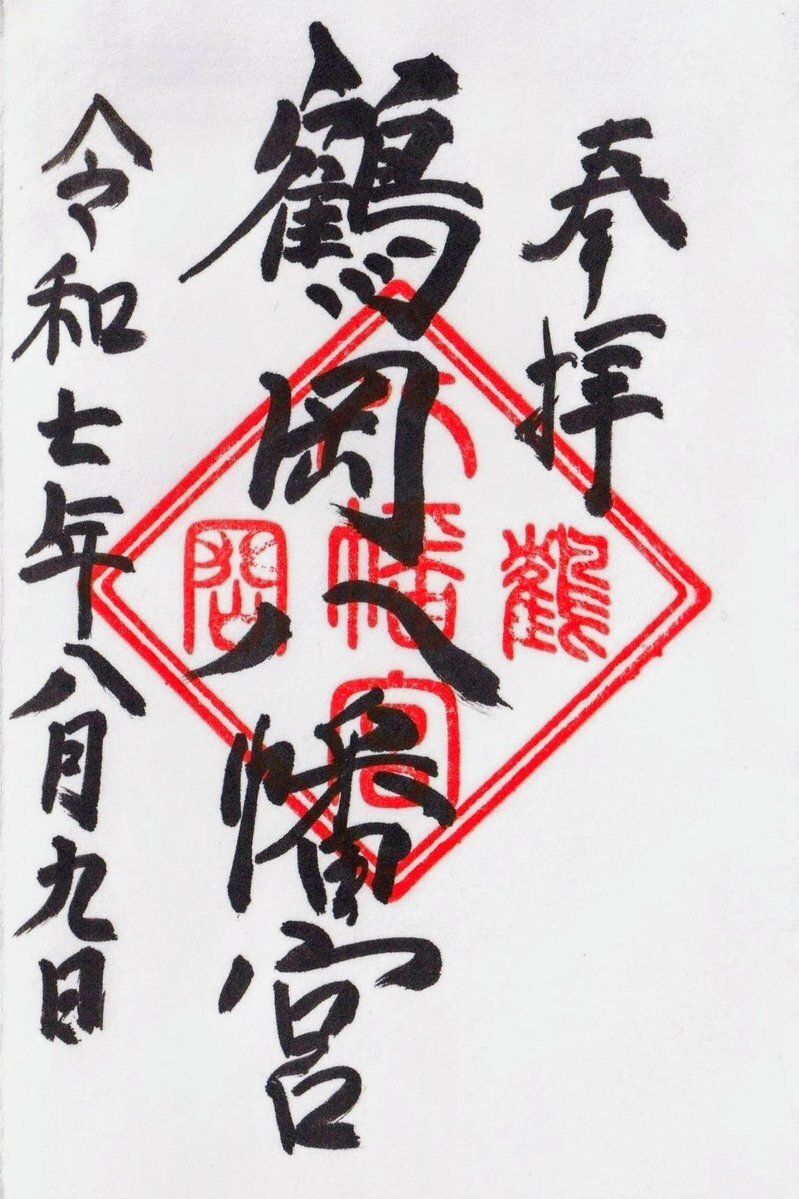 奉拝
鶴岡八幡宮
令和七年八月九日
鶴
岡
八
幡
宮